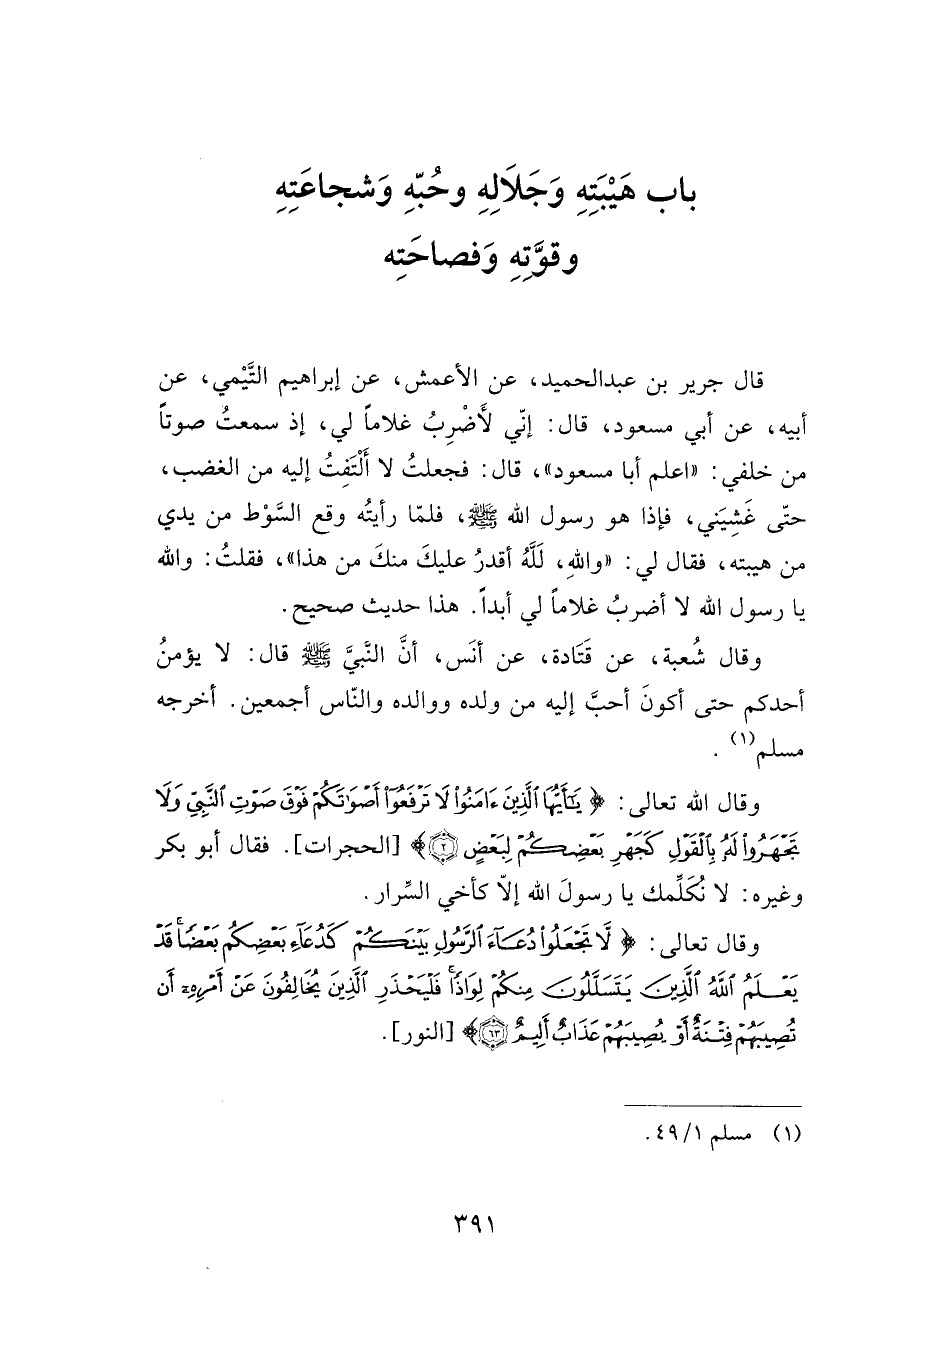 باب هَيْبَتِهِ وَجَلَالِهِ وحُبّهِ وَشجاعَتِهِ
وقوَّتِهِ وَفصاحَتِه
قال جرير بن عبدالحميد، عن الأعمش، عن إبراهيم التَّيْمي، عن
أبيه، عن أبي مسعود، قال: إنّي لَأَضْرِبُ غلاماً لي، إذ سمعتُ صوتاً
من خلفي: «اعلم أبا مسعود»، قال: فجعلتُ لا أَلْتَفِتُ إليه من الغضب،
حتّى غَشِيَني، فإذا هو رسول الله ﷺ، فلمّا رأيتُه وقع السَّوْط من يدي
من هيبته، فقال لي: «واللهِ، لَلَّهُ أقدرُ عليكَ منكَ من هذا»، فقلتُ: والله
يا رسول الله لا أضربُ غلاماً لي أبداً. هذا حديث صحيح.
وقال شُعبة، عن قَتَادة، عن أنَس، أنَّ النَّبيَّ ﷺ قال: لا يؤمنُ
أحدكم حتى أكونَ أحبَّ إليه من ولده ووالده والنّاس أجمعين. أخرجه
مسلم(١).
وقال الله تعالى: ﴿يَٰٓأَيُّهَا ٱلَّذِينَ ءَامَنُوا۟ لَا تَرْفَعُوٓا۟ أَصْوَٰتَكُمْ فَوْقَ صَوْتِ ٱلنَّبِيِّ وَلَا
تَجْهَرُوا۟ لَهُۥ بِٱلْقَوْلِ كَجَهْرِ بَعْضِكُمْ لِبَعْضٍ ٢﴾ [الحجرات]. فقال أبو بكر
وغيره: لا نُكَلِّمك يا رسولَ الله إلاّ كأخي السِّرار.
وقال تعالى: ﴿لَّا تَجْعَلُوا۟ دُعَآءَ ٱلرَّسُولِ بَيْنَكُمْ كَدُعَآءِ بَعْضِكُم بَعْضًا ۚ قَدْ
يَعْلَمُ ٱللَّهُ ٱلَّذِينَ يَتَسَلَّلُونَ مِنكُمْ لِوَاذًا ۚ فَلْيَحْذَرِ ٱلَّذِينَ يُخَالِفُونَ عَنْ أَمْرِهِۦٓ أَن
تُصِيبَهُمْ فِتْنَةٌ أَوْ يُصِيبَهُمْ عَذَابٌ أَلِيمٌ ٦٣﴾ [النور].
(١) مسلم ٤٩/١.
٣٩١